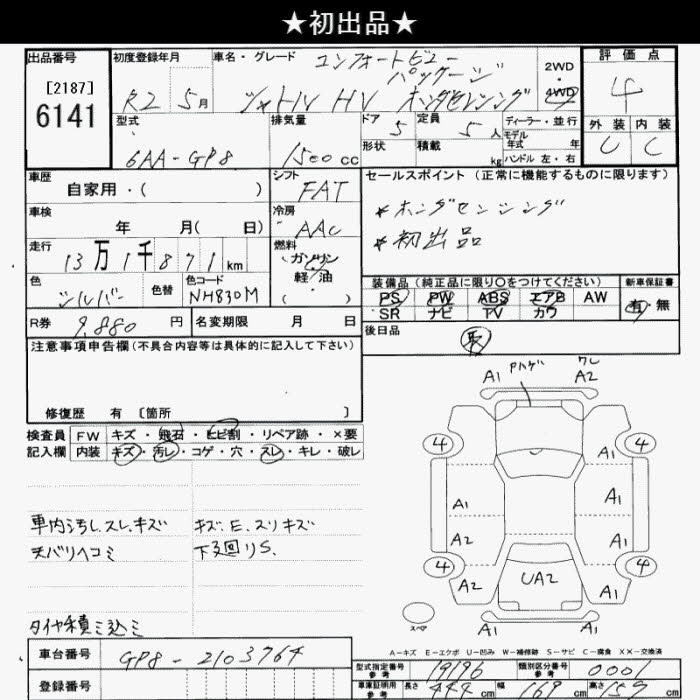 ★初出品★
出品番号
[2187]
6141
初度登録年月
R2 5月
車名・グレード
コンフォートビュー
パッケージ
シャトル HV ホンダセンシング
2WD
・
4WD
評価点
4
外装 内装
C C
型式
6AA-GP8
排気量
1500cc
ドア 5
定員 5人
形状
積載 kg
ディーラー・並行
モデル
年式 年
ハンドル 左・右
車歴
自家用・( )
シフト
FAT
車検
年 月( 日)
冷房
AAC
走行
13万1千871km
燃料
ガソリン
軽・油
( )
色
シルバー
色替
色コード
NH830M
R券
9.880円
名変期限 月 日
セールスポイント (正常に機能するものに限ります)
*ホンダセンシング
*初出品
装備品 (純正品に限り〇をつけてください)
PS PW ABS エアB AW
SR ナビ TV カワ
新車保証書
有・無
後日品
注意事項申告欄(不具合内容等は具体的に記入して下さい)
修復歴 有 [箇所 ]
検査員
記入欄
FW キズ・飛石・ヒビ割・リペア跡・×要
内装 キズ・汚レ・コゲ・穴・スレ・キレ・破レ
車内汚し.スレ.キズ
天バリヘコミ
タイヤ積ミ込ミ
キズ.E.スリキズ
下廻りS.
A1 A2
4 4
A1
A1 A1
A2 A1
4 4
A2 UA2 A1
A1
スペア
A-キズ E-エクボ U-凹み W-補修跡 S-サビ C-腐食 XX-交換済
車台番号
GP8-2103764
登録番号
型式指定番号
参考
19196
類別区分番号
参考
0001
車庫証明用
参考
長さ 444cm 幅 169cm 高さ 157cm